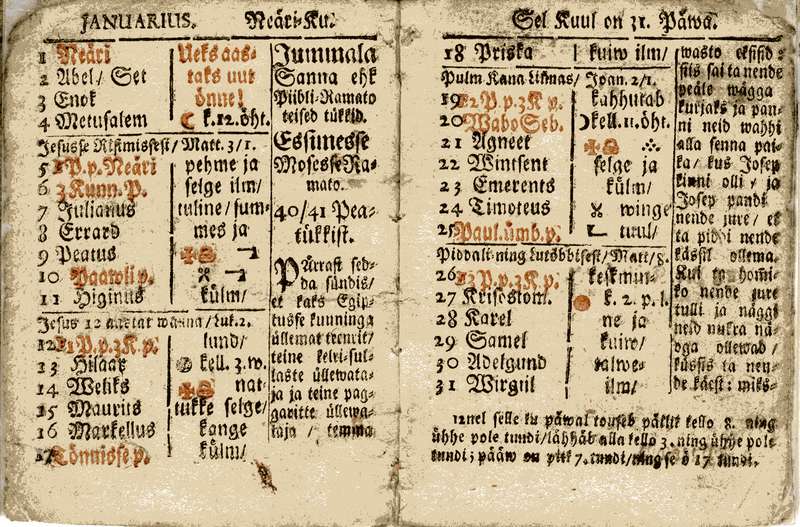 JANUARIUS. Neäri-Ku.
1 Neäri
2 Abel/ Set
3 Enok
4 Metusalem
Ueks aas-
taks uut
önne!
k.12. öht.
Jesusse Ristmissest/ Matt. 3/1.
5 1P.p.Neäri
6 3 Kunn. P.
7 Julianus
8 Errard
9 Peatus
10 Paawli p.
11 Higinus
pehme ja
selge ilm/
tuline/sum-
mes ja
külm/
Jesus 12 aastat wanna/Luk.2.
12 1P.p.3K p.
13 Hilaar
14 Weliks
15 Maurits
16 Markellus
17 Tönnisse p.
lund/
kell. 3. w.
nat-
tukke selge/
kange
külm/
Jummala
Sanna ehk
Piibli-Ramato
teised tükkid.
Essimesse
Mosesse Ra-
mato.
40/41 Pea-
tükkist.
Pärrast sed-
da sündis/
et kaks Egip-
tusse kuninga
üllemat teenrit/
teine kelri-sul-
laste üllewata-
ja ja teine pag-
garitte üllewa-
taja / temma
Sel Kuul on 31. Päwa.
18 Priska
kuiw ilm/
Pulm Kana Linnas/ Joan. 2/1.
19 2 P.p.3K p.
20 Wabo Seb.
21 Agneet
22 Wintsent
23 Emerents
24 Timoteus
25 Paul.ümb.p.
kahhutab
kell.11.öht.
selge ja
külm/
winge
tuul/
Piddali-ning Lutsbbisest/ Matt/8.
26 3P.p.3K p.
27 Krisostom.
28 Karel
29 Samel
30 Adelgund
31 Wirgiil
keskmin-
k. 2. p. l.
ne ja
kuiw/
talwe-
ilm/
wasto eksisid:
siis sai ta nende
peäle wägga
kurjaks ja pan-
ni neid wahhi
alla senna pai-
ka/ kus Josep
kinni olli / ja
Josep pandi
nende jure/ et
ta piddi nende
kässil ollema.
Kui ta homi-
ko nende jure
tulli ja näggi
neid nukra nä-
oga ollewad/
küssis ta nen-
de käest: miks-
12nel selle ku päwal touseb päikit kello 8. ning
ühhe pole tundi/lähhäb alla kello 3. ning ühhe pole
tundi; pääw on pitk 7. tundi/ning se ö 17 tundi.